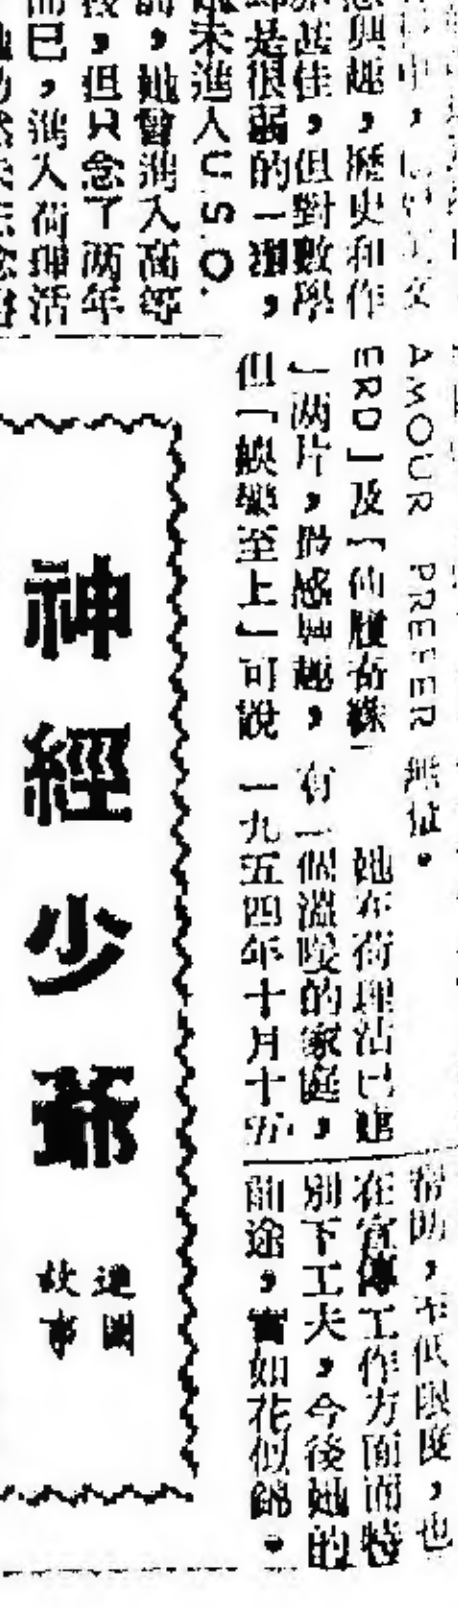 興趣，歷史和作
甚佳，但對數學
却是很弱的一環，
未進入U.S.O.
前，她曾進入高等
，但只念了两年
而已，進入荷理活
AMOUR PREFER 無
ERD」及「仙履奇緣
」两片，仍感興趣，
但「娛樂至上」可說
她在荷理活已建
有一個溫暖的家庭，
一九五四年十月十五
幫助，至低限度，也
在宣傳工作方面而特
別下工夫，今後她的
前途，實如花似錦。
神經少爺
連圖
故事